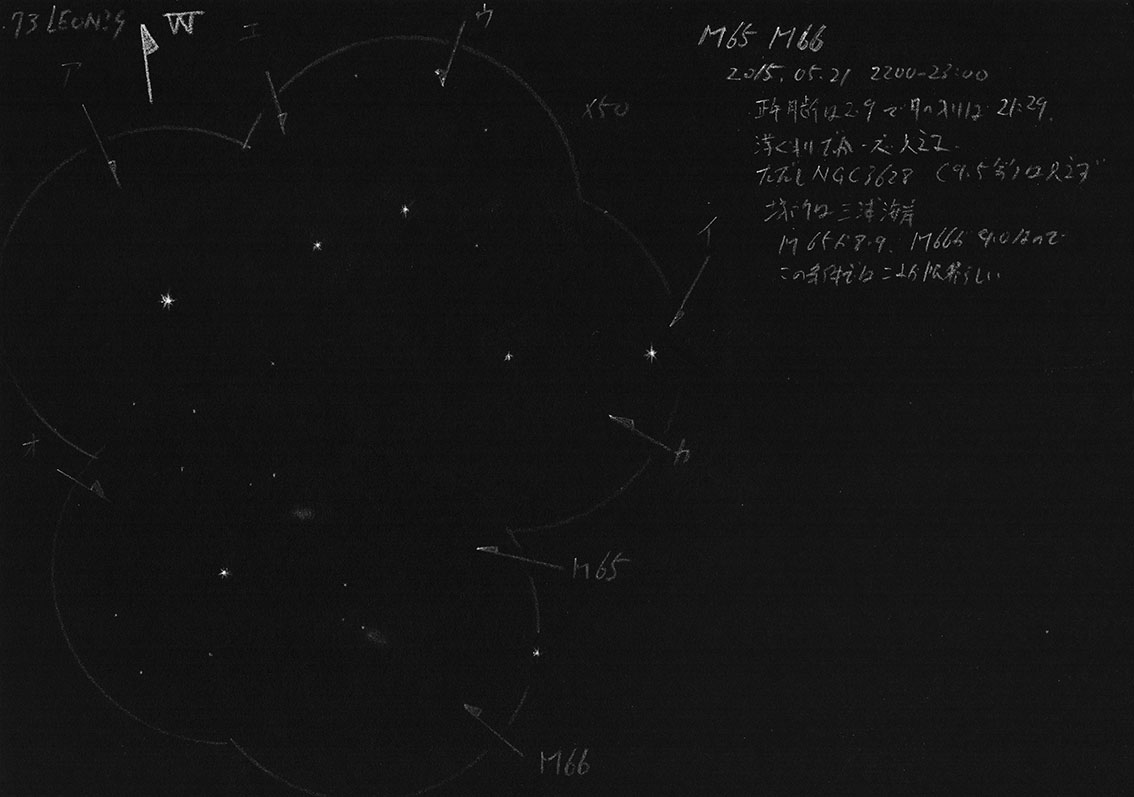 73 LEONIS
W
ア
エ
ウ
×50
イ
オ
カ
M65
M66
M65 M66
2015.05.21 2200-23:00
正午月齢は2.9で月の入りは21:29.
薄く
ただしNGC3628 (9.5等)は見えず
場所は三浦海岸
M65が8.9、M66が9.0なので
この条件ではこれが限界らしい